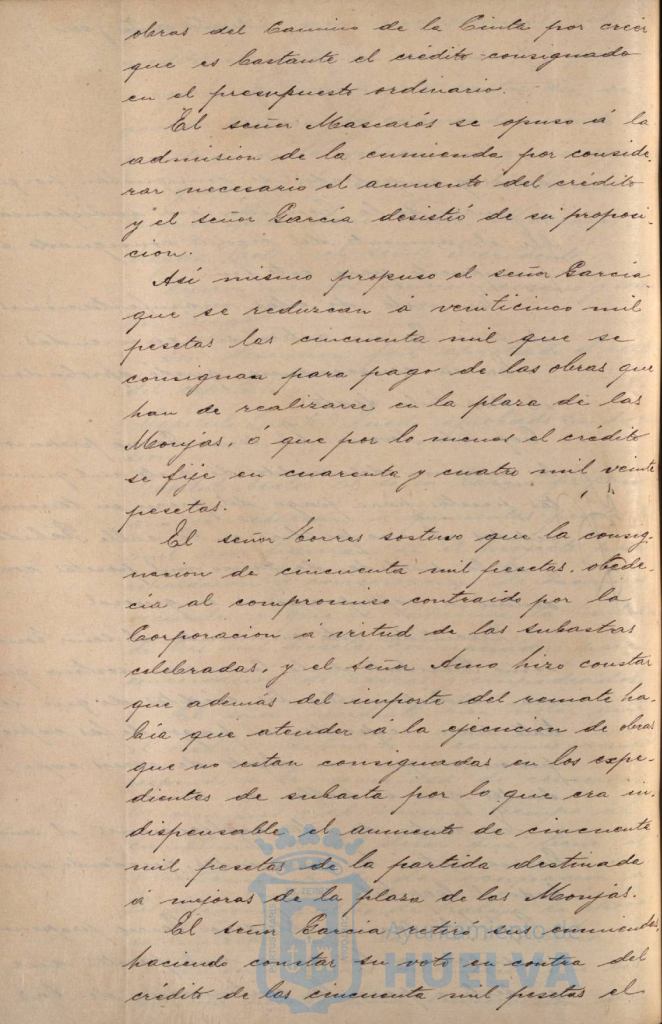 obras del Camino de la Cinta por creer
que es bastante el crédito consignado
en el presupuesto ordinario.
El señor Mascarós se opuso á la
admision de la enmienda por conside-
rar necesario el aumento del crédito
y el señor García desistió de su proposi-
cion.
Así mismo propuso el señor García
que se reduzcan á veinticinco mil
pesetas las cincuenta mil que se
consignan para pago de las obras que
han de realizarse en la plaza de las
Monjas, ó que por lo menos el crédito
se fije en cuarenta y cuatro mil veinte
pesetas.
El señor Torres sostuvo que la consig-
nacion de cincuenta mil pesetas, obede-
cia al compromiso contraido por la
Corporacion á virtud de las subastas
celebradas, y el señor Amo hizo constar
que además del importe del remate ha-
bía que atender á la ejecucion de obras
que no estan consignadas en los expe-
dientes de subasta por lo que era in-
dispensable el aumento de cincuenta
mil pesetas de la partida destinada
á mejoras de la plaza de las Monjas.
El señor García retiró sus enmiendas
haciendo constar su voto en contra del
crédito de las cincuenta mil pesetas el
Ayuntamiento de
HUELVA